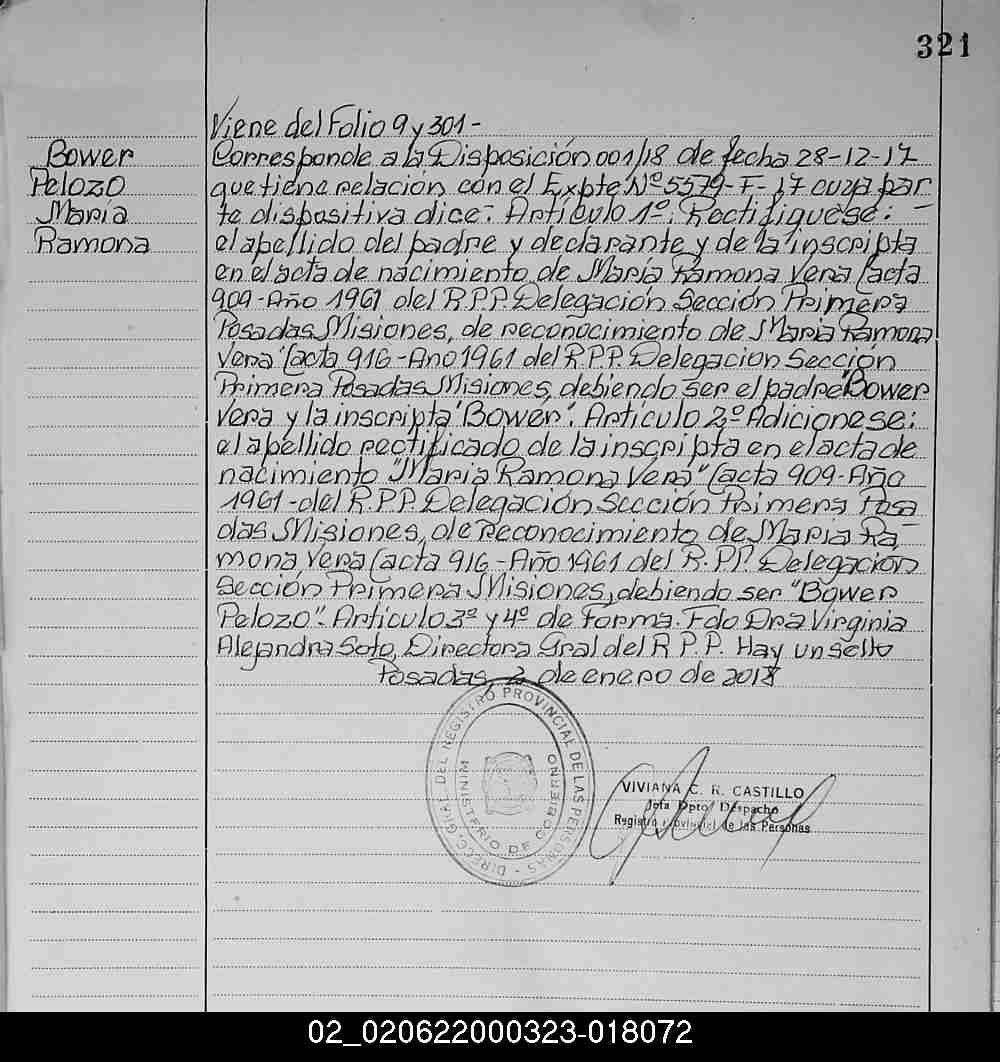 321
Viene del Folio 9 y 301-
Bower
Pelozo
María
Ramona
Corresponde a la Disposición 001/18 de fecha 28-12-17
que tiene relación con el Expte. Nº 5579-F-17 cuya par
te dispositiva dice: Artículo 1º: Rectifiquese:
el apellido del padre y declarante y de la inscripta
en el acta de nacimiento de María Ramona Vera (acta
909-Año 1961 del R.P.P. Delegación Sección Primera
Posadas Misiones, de reconocimiento de Maria Ramona
Vera" (acta 916-Año 1961 del R.P.P. Delegación Sección
Primera Posadas Misiones, debiendo ser el padre "Bower
Vera y la inscripta "Bower". Artículo 2º Adicionese:
el apellido rectificado de la inscripta en el acta de
nacimiento "Maria Ramona Vera" (acta 909-Año
1961-del R.P.P. Delegación Sección Primera Posa
das Misiones, de Reconocimiento de Maria Ra
mona Vera (acta 916-Año 1961 del R.P.P. Delegación
Sección Primera Misiones, debiendo ser "Bower
Pelozo". Artículo 3º y 4º de Forma. Fdo Dra Virginia
Alejandra Soto, Directora Gral del R.P.P. Hay un sello
Posadas, 2 de enero de 2018
DIRECC. GRAL. DEL REGISTRO PROVINCIAL DE LAS PERSONAS -
MINISTERIO DE GOBIERNO
VIVIANA C. R. CASTILLO
Jefa Dpto Despacho
Registro Provincial de las Personas
02_020622000323-018072